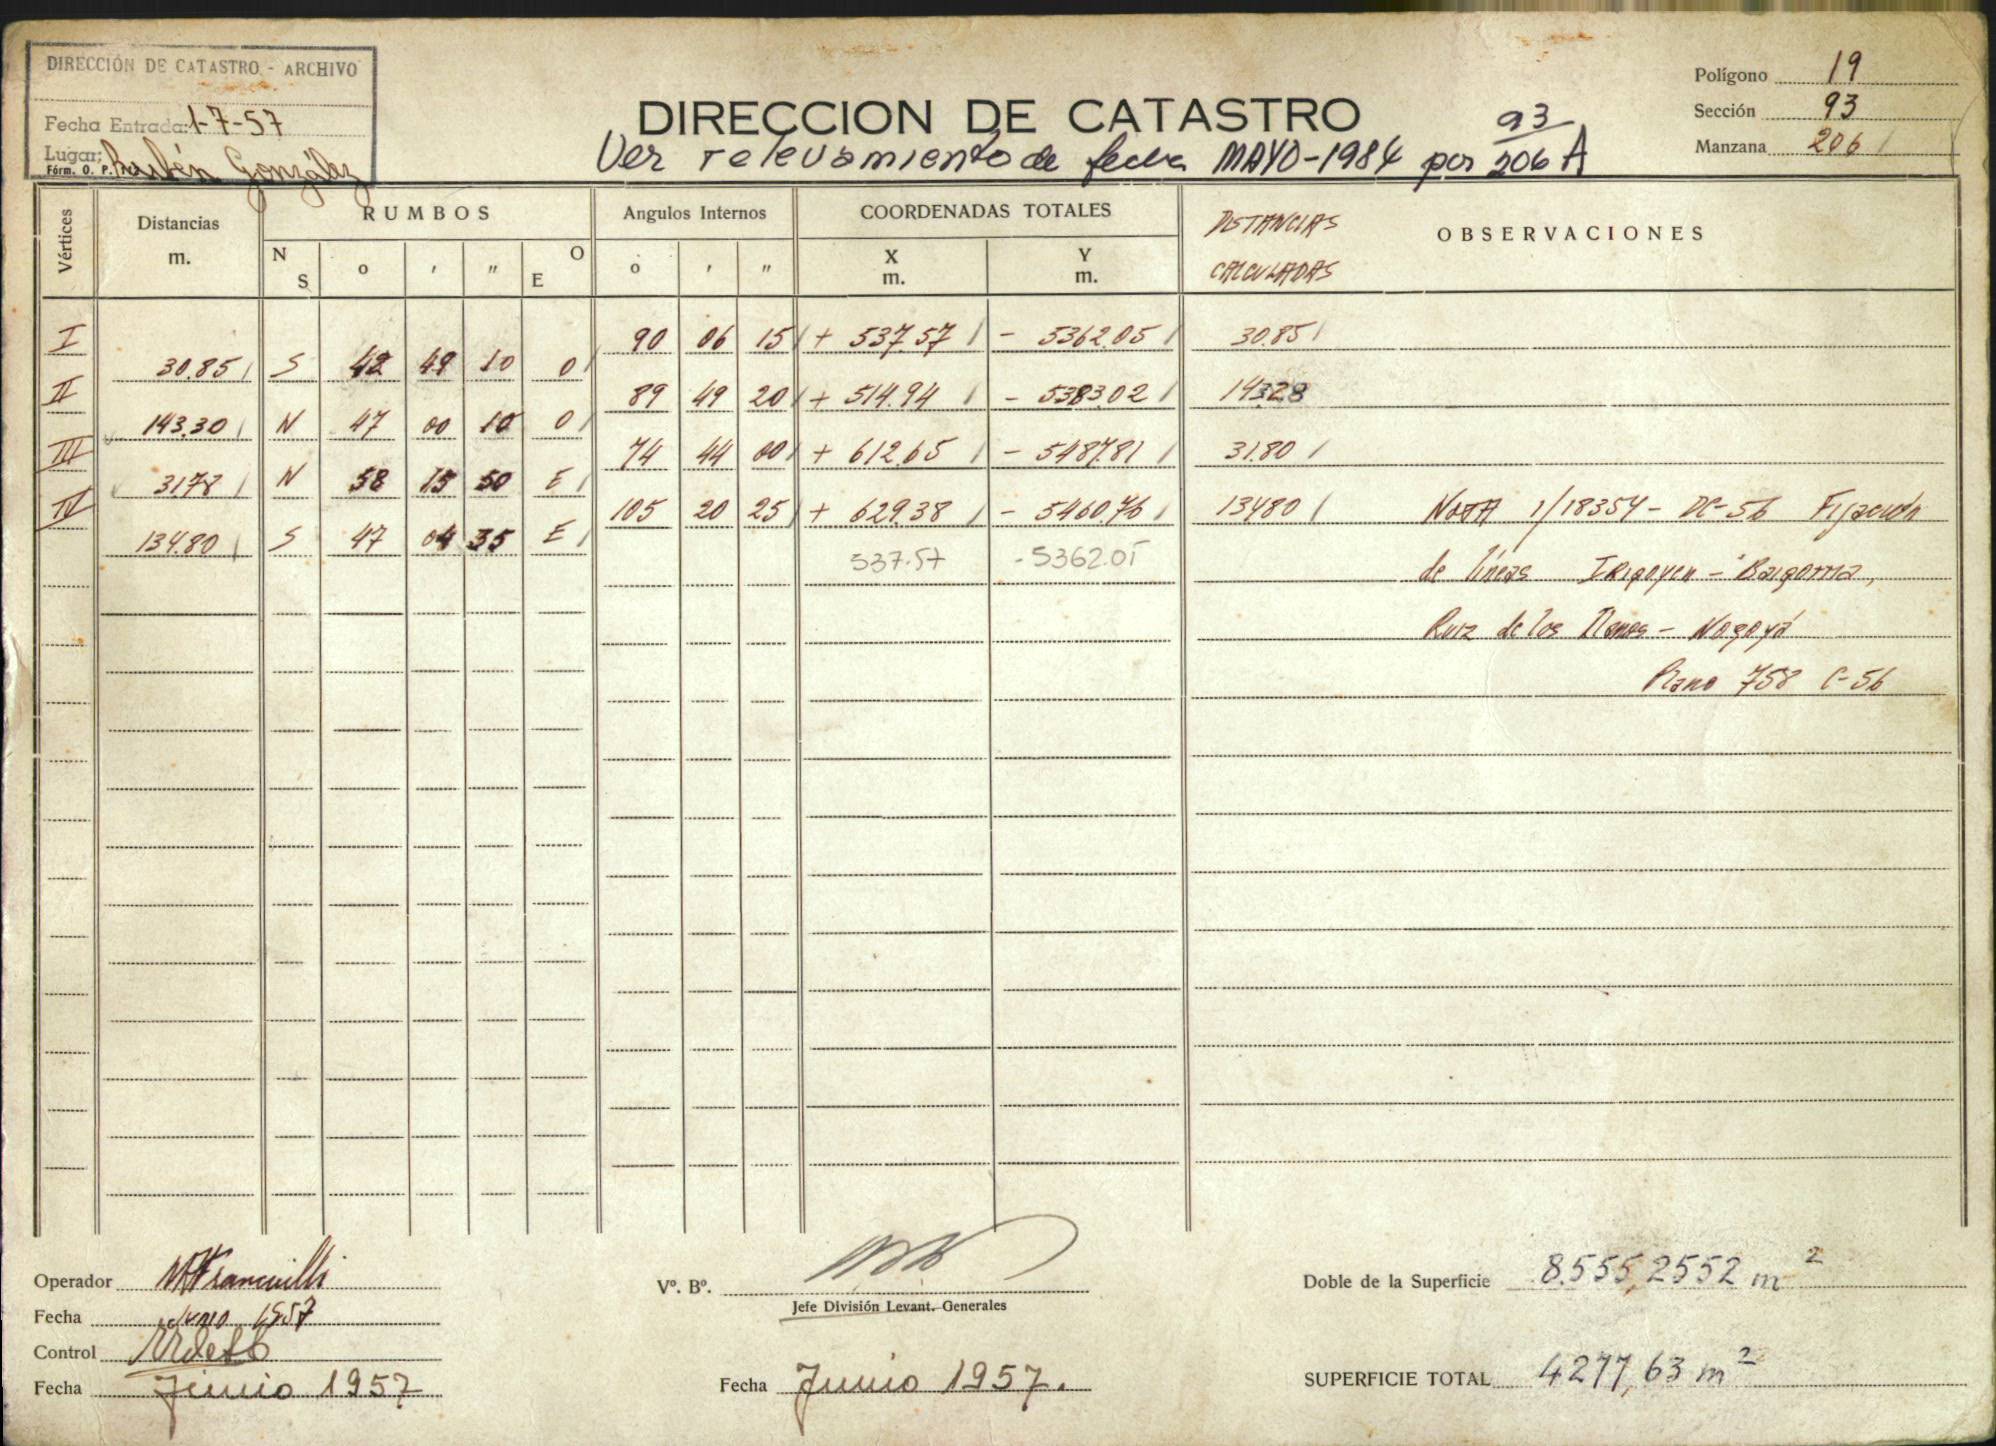 DIRECCIÓN DE CATASTRO - ARCHIVO
Fecha Entrada: 1-7-57
Lugar: Rubén González
Fórm. O. P.
DIRECCION DE CATASTRO
Ver relevamiento de fecha MAYO-1984 por 93/206 A
Polígono 19
Sección 93
Manzana 206
Vértices
Distancias
m.
RUMBOS
N S o ' " O E
Angulos Internos
o ' "
COORDENADAS TOTALES
X m. Y m.
DISTANCIAS CALCULADAS
OBSERVACIONES
I 90 06 15 + 537.57 - 5362.05 30.85
30.85 S 49 10 O
II 89 49 20 + 514.94 - 5383.02 143.28
143.30 N 47 00 10 O
III 74 44 00 + 612.65 - 5487.81 31.80
31.78 N 58 15 50 E
IV 105 20 25 + 629.38 - 5460.76 134.80 NOTA 1/18354 - DC-56 Fijación
134.80 S 47 04 35 E
537.57 - 5362.05 de líneas Irigoyen - Baigorria,
Ruiz de los Llanos - Nogoyá
Plano 758 C-56
Operador
Fecha Junio 1957
Control
Fecha Junio 1957
Vº. Bº.
Jefe División Levant. Generales
Fecha Junio 1957.
Doble de la Superficie 8.555,2552 m2
SUPERFICIE TOTAL 4277,63 m2